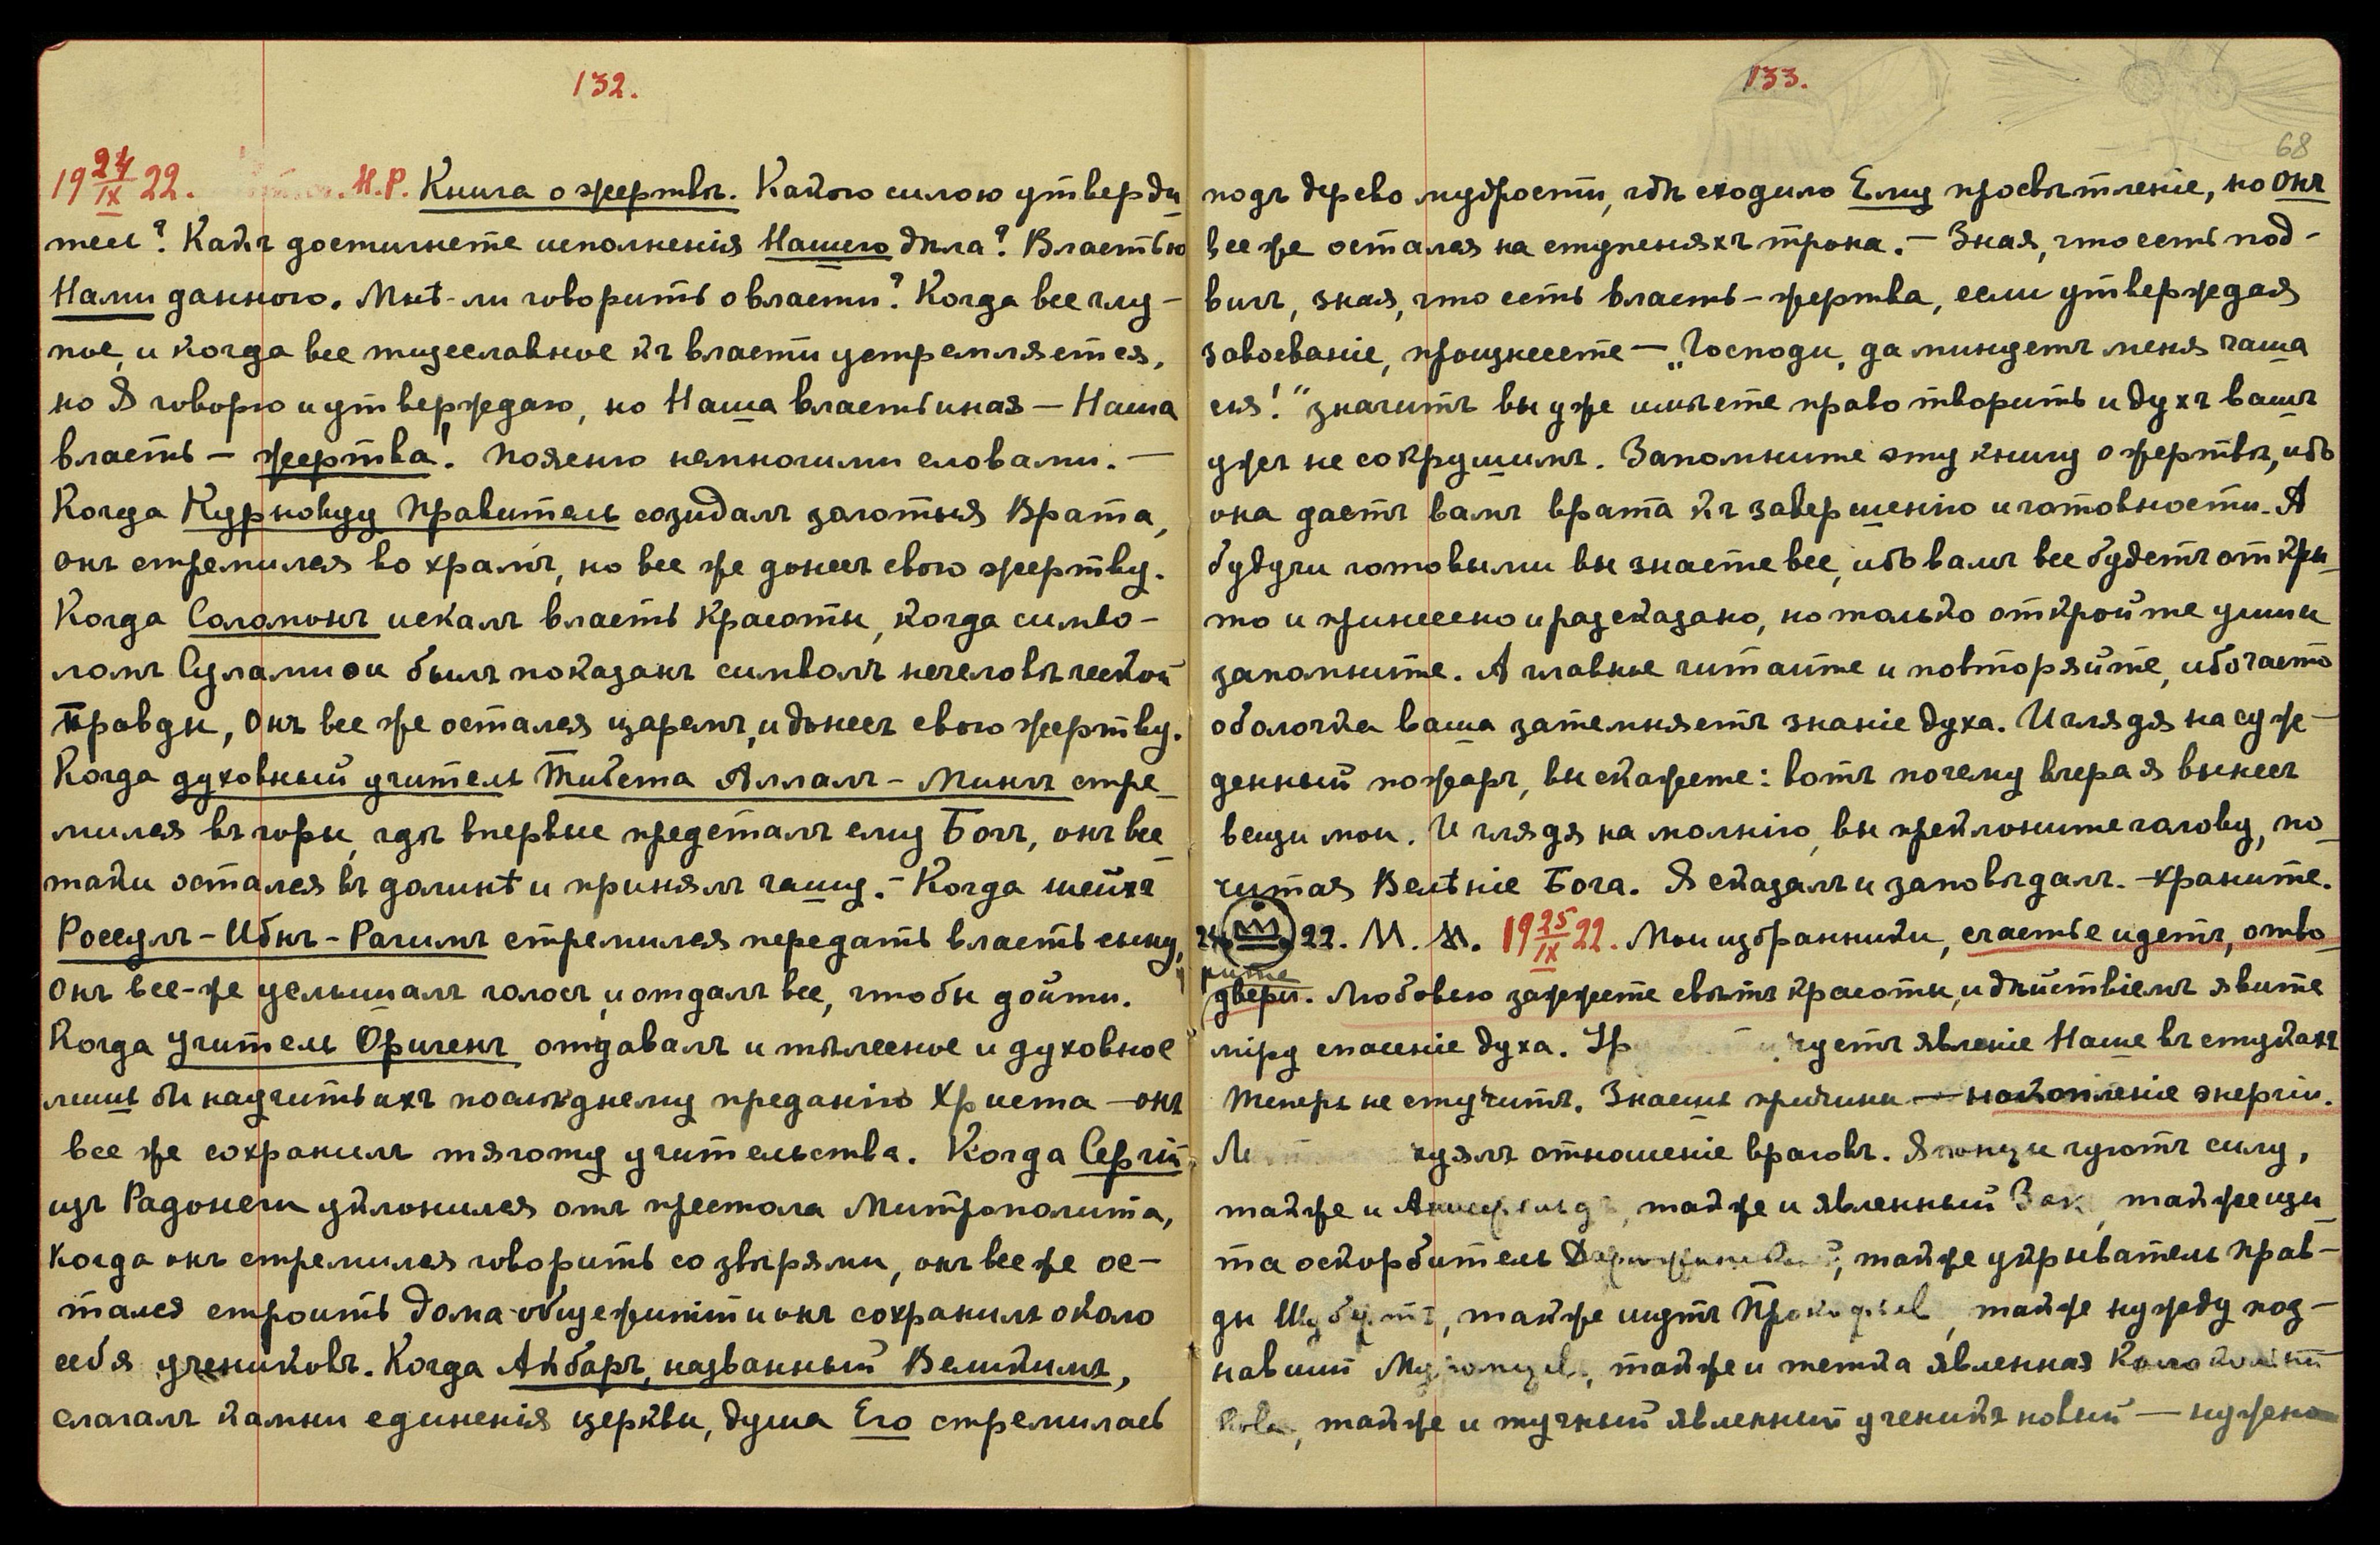 132.
19 24/IX 22. Н.Р. Книга о жертвѣ. Какою силою утверди-
тесь? Какъ достигнете исполненія Нашего дѣла? Властью
Нами данною. Мнѣ-ли говорить о власти? Когда все глу-
пое, и когда все тщеславное къ власти устремляется,
но Я говорю и утверждаю, но Наша власть иная — Наша
власть — жертва! Поясню немногими словами. —
Когда Курновуу Правитель созидалъ золотыя Врата,
онъ стремился во храмъ, но все же донесъ свою жертву.
Когда Соломонъ искалъ власть красоты, когда симво-
ломъ Суламиѳи былъ показанъ символъ нечеловѣческой
Правды, Онъ все же остался царемъ, и донесъ свою жертву.
Когда духовный учитель Тибета Аллалъ-Мингъ стре-
мился въ горы, гдѣ впервые предсталъ ему Богъ, онъ все
таки остался въ долинѣ и принялъ чашу. — Когда шейхъ
Россулъ-Ибнъ-Рагимъ стремился передать власть сыну,
Онъ все-же услышалъ голосъ, и отдалъ все, чтобы дойти.
Когда учитель Оригенъ отдавалъ и тѣлесное и духовное
лишь бы научить ихъ послѣднему преданію Христа — онъ
все же сохранилъ тяготу учительства. Когда Сергій
изъ Радонеги уклонился отъ престола Митрополита,
когда онъ стремился говорить со звѣрями, онъ все же ос-
тался строить дома-общежитій и онъ сохранилъ около
себя учениковъ. Когда Акбаръ, названный Великимъ,
слагалъ камни единенія церкви, душа Его стремилась
133.
68
подъ древо мудрости, гдѣ сходило Ему просвѣтленіе, но Онъ
все же остался на ступеняхъ трона. — Зная, что есть под-
вигъ, зная, что есть власть-жертва, если утверждая
завоеваніе, произнесете — „Господи, да минуетъ меня чаша
сія!" значитъ вы уже имѣете право творить и духъ вашъ
ужъ не сокрушимъ. Запомните эту книгу о жертвѣ, ибо
она даетъ вамъ врата къ завершенію и готовности. А
будучи готовыми вы знаете все, ибо вамъ все будетъ откры-
то и принесено и разсказано, но только откройте уши и
запомните. А главное читайте и повторяйте, ибо часто
оболочка ваша затемняетъ знаніе духа. И глядя на суж-
денный пожаръ, вы скажете: вотъ почему вчера я вынесъ
вещи мои. И глядя на молнію, вы преклоните голову, по-
читая Велѣніе Бога. Я сказалъ и заповѣдалъ. — храните.
24 22. М. М. 19 25/IX 22. Мои избранники, счастье идетъ, отво-
рите
двери. Любовью зажжете свѣтъ красоты, и дѣйствіемъ явите
міру спасеніе духа. чуетъ явленіе Наше въ стукахъ
Теперь не стучитъ. Знаешь причины — накопленіе энергіи.
отношеніе враговъ. Японцы чуютъ силу,
также и также и явленный также щи-
та оскорбитель также укрыватель прав-
ды Шубертъ, также шутъ Прокофьев, также нужду поз-
навшій также и тетка явленная
также и тучный явленный ученикъ новый — нужно